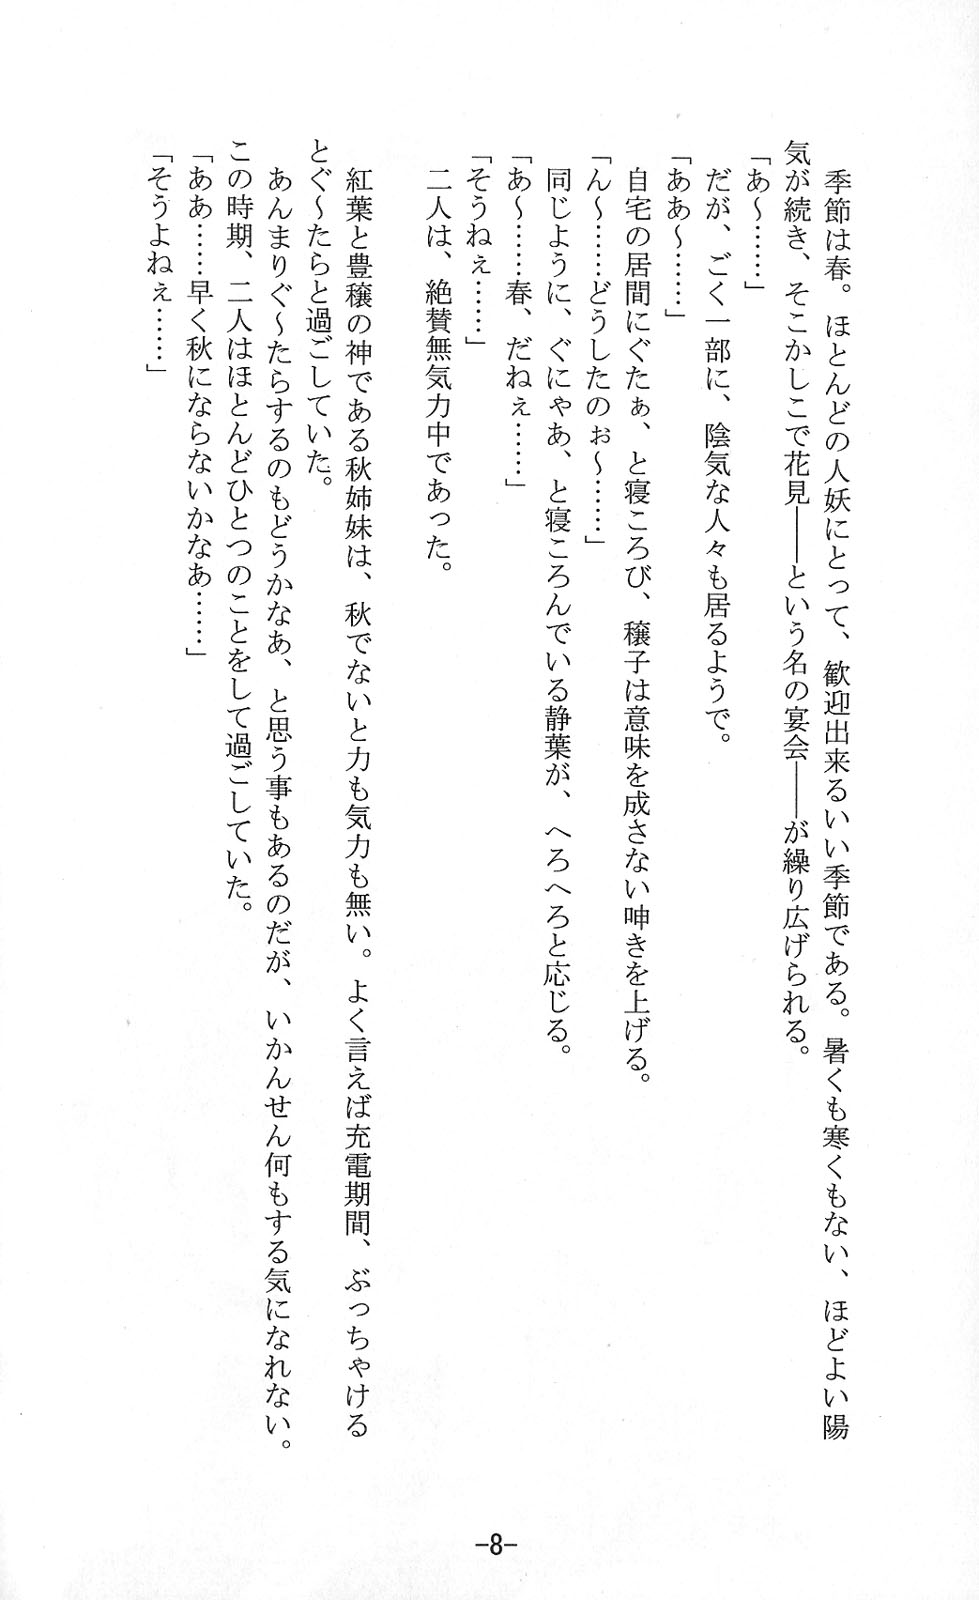 季節は春。ほとんどの人妖にとって、歓迎出来るいい季節である。暑くも寒くもない、ほどよい陽
気が続き、そこかしこで花見――という名の宴会――が繰り広げられる。
「あ～……」
だが、ごく一部に、陰気な人々も居るようで。
「ああ～……」
自宅の居間にぐたぁ、と寝ころび、穣子は意味を成さない呻きを上げる。
「ん～……どうしたのぉ～……」
同じように、ぐにゃあ、と寝ころんでいる静葉が、へろへろと応じる。
「あ～……春、だねぇ……」
「そうねぇ……」
二人は、絶賛無気力中であった。
紅葉と豊穣の神である秋姉妹は、秋でないと力も気力も無い。よく言えば充電期間、ぶっちゃける
とぐ～たらと過ごしていた。
あんまりぐ～たらするのもどうかなあ、と思う事もあるのだが、いかんせん何もする気になれない。
この時期、二人はほとんどひとつのことをして過ごしていた。
「ああ……早く秋にならないかなあ……」
「そうよねぇ……」
-8-